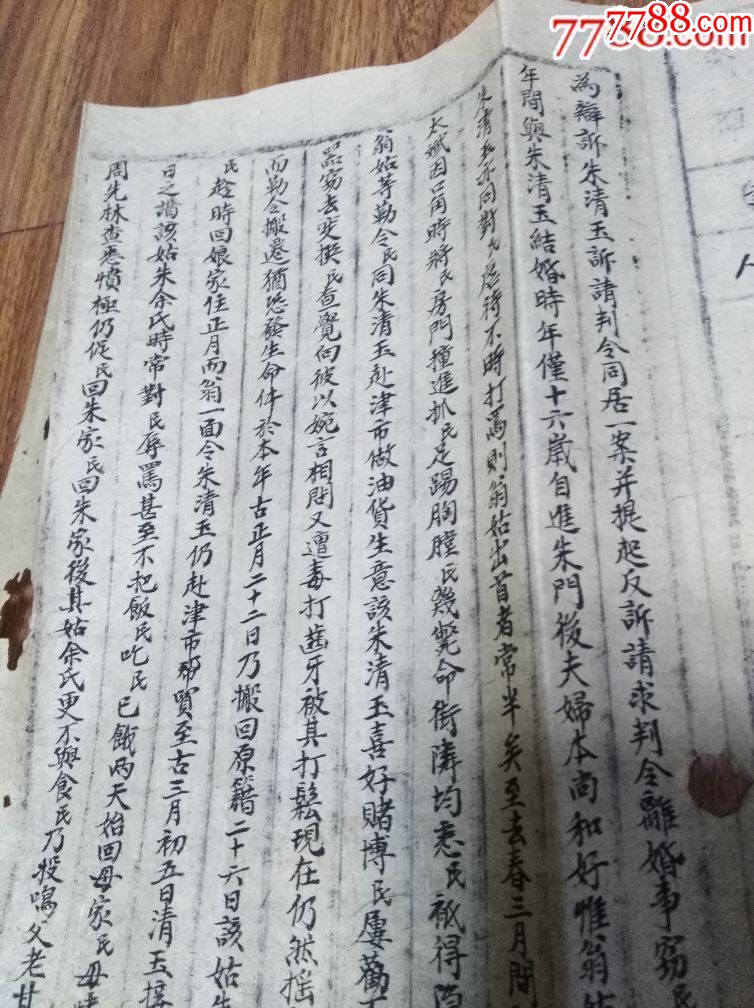 7788.com
7788.com
為辯訴朱清玉訴請判令同居一案并提起反訴請求判令離婚事竊民
年間與朱清玉結婚時年僅十六歲自進朱門後夫婦本尚和好惟翁姑
朱清玉亦同對民虐待不時打罵則翁姑出首者常半矣至去春三月間
太斌因口角時將民房門撞進抓民足踢胸膛民幾斃命街隣均悉民祗得隱
翁姑等勒令民同朱清玉赴津市做油貨生意該朱清玉喜好賭博民屢勸不
器竊去变換民查覺向彼以婉言相問又遭毒打齒牙被其打鬆現在仍然搖
而勒令搬還猶恐發生命体於本年古正月二十二日乃搬回原籍二十六日該姑朱
民趁時回娘家住正月而翁一面令朱清玉仍赴津市帮貿至古三月初五日清玉接
日之譜該姑朱余氏時常對民辱罵甚至不把飯民吃民已餓兩天始回母家民母
周先林查悉憤極仍促民回朱家民回朱家後其姑余氏更不與食民乃投鳴父老甘
人